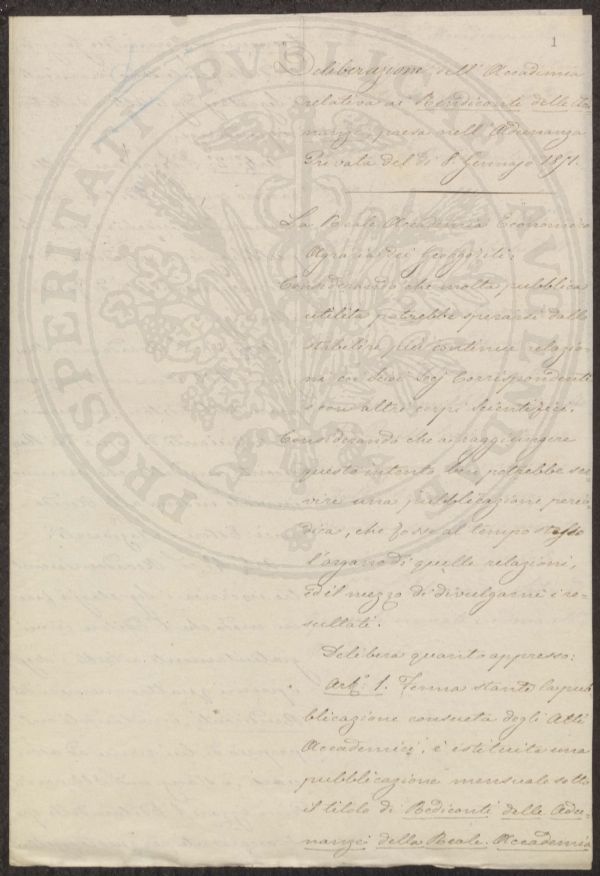 1
PROSPERITATI PUBLICAE AUGENDAE
Deliberazione dell' Accademia
relativa ai Rendiconti delle Adu-
nanze, presa nell' Adunanza
Privata del dì 8. Gennajo 1851.
La Reale Accademia Economico
Agraria dei Georgofili,
Considerando che molta pubblica
utilità potrebbe sperarsi dallo
stabilire più continue relazio-
ni coi Suoi Socj Corrispondenti
e con altri corpi scientifici.
Considerando che a raggiungere
questo intento ben potrebbe ser-
vire una pubblicazione perio-
dica, che fosse al tempo stesso
l'organo di quelle relazioni,
ed il mezzo di divulgarne i re-
sultati.
Delibera quanto appresso:
Art.° 1. Ferma stante la pub-
blicazione consueta degli Atti
Accademici, è istituita una
pubblicazione mensuale sotto
il titolo di Rediconti delle Adu-
nanze della Reale Accademia